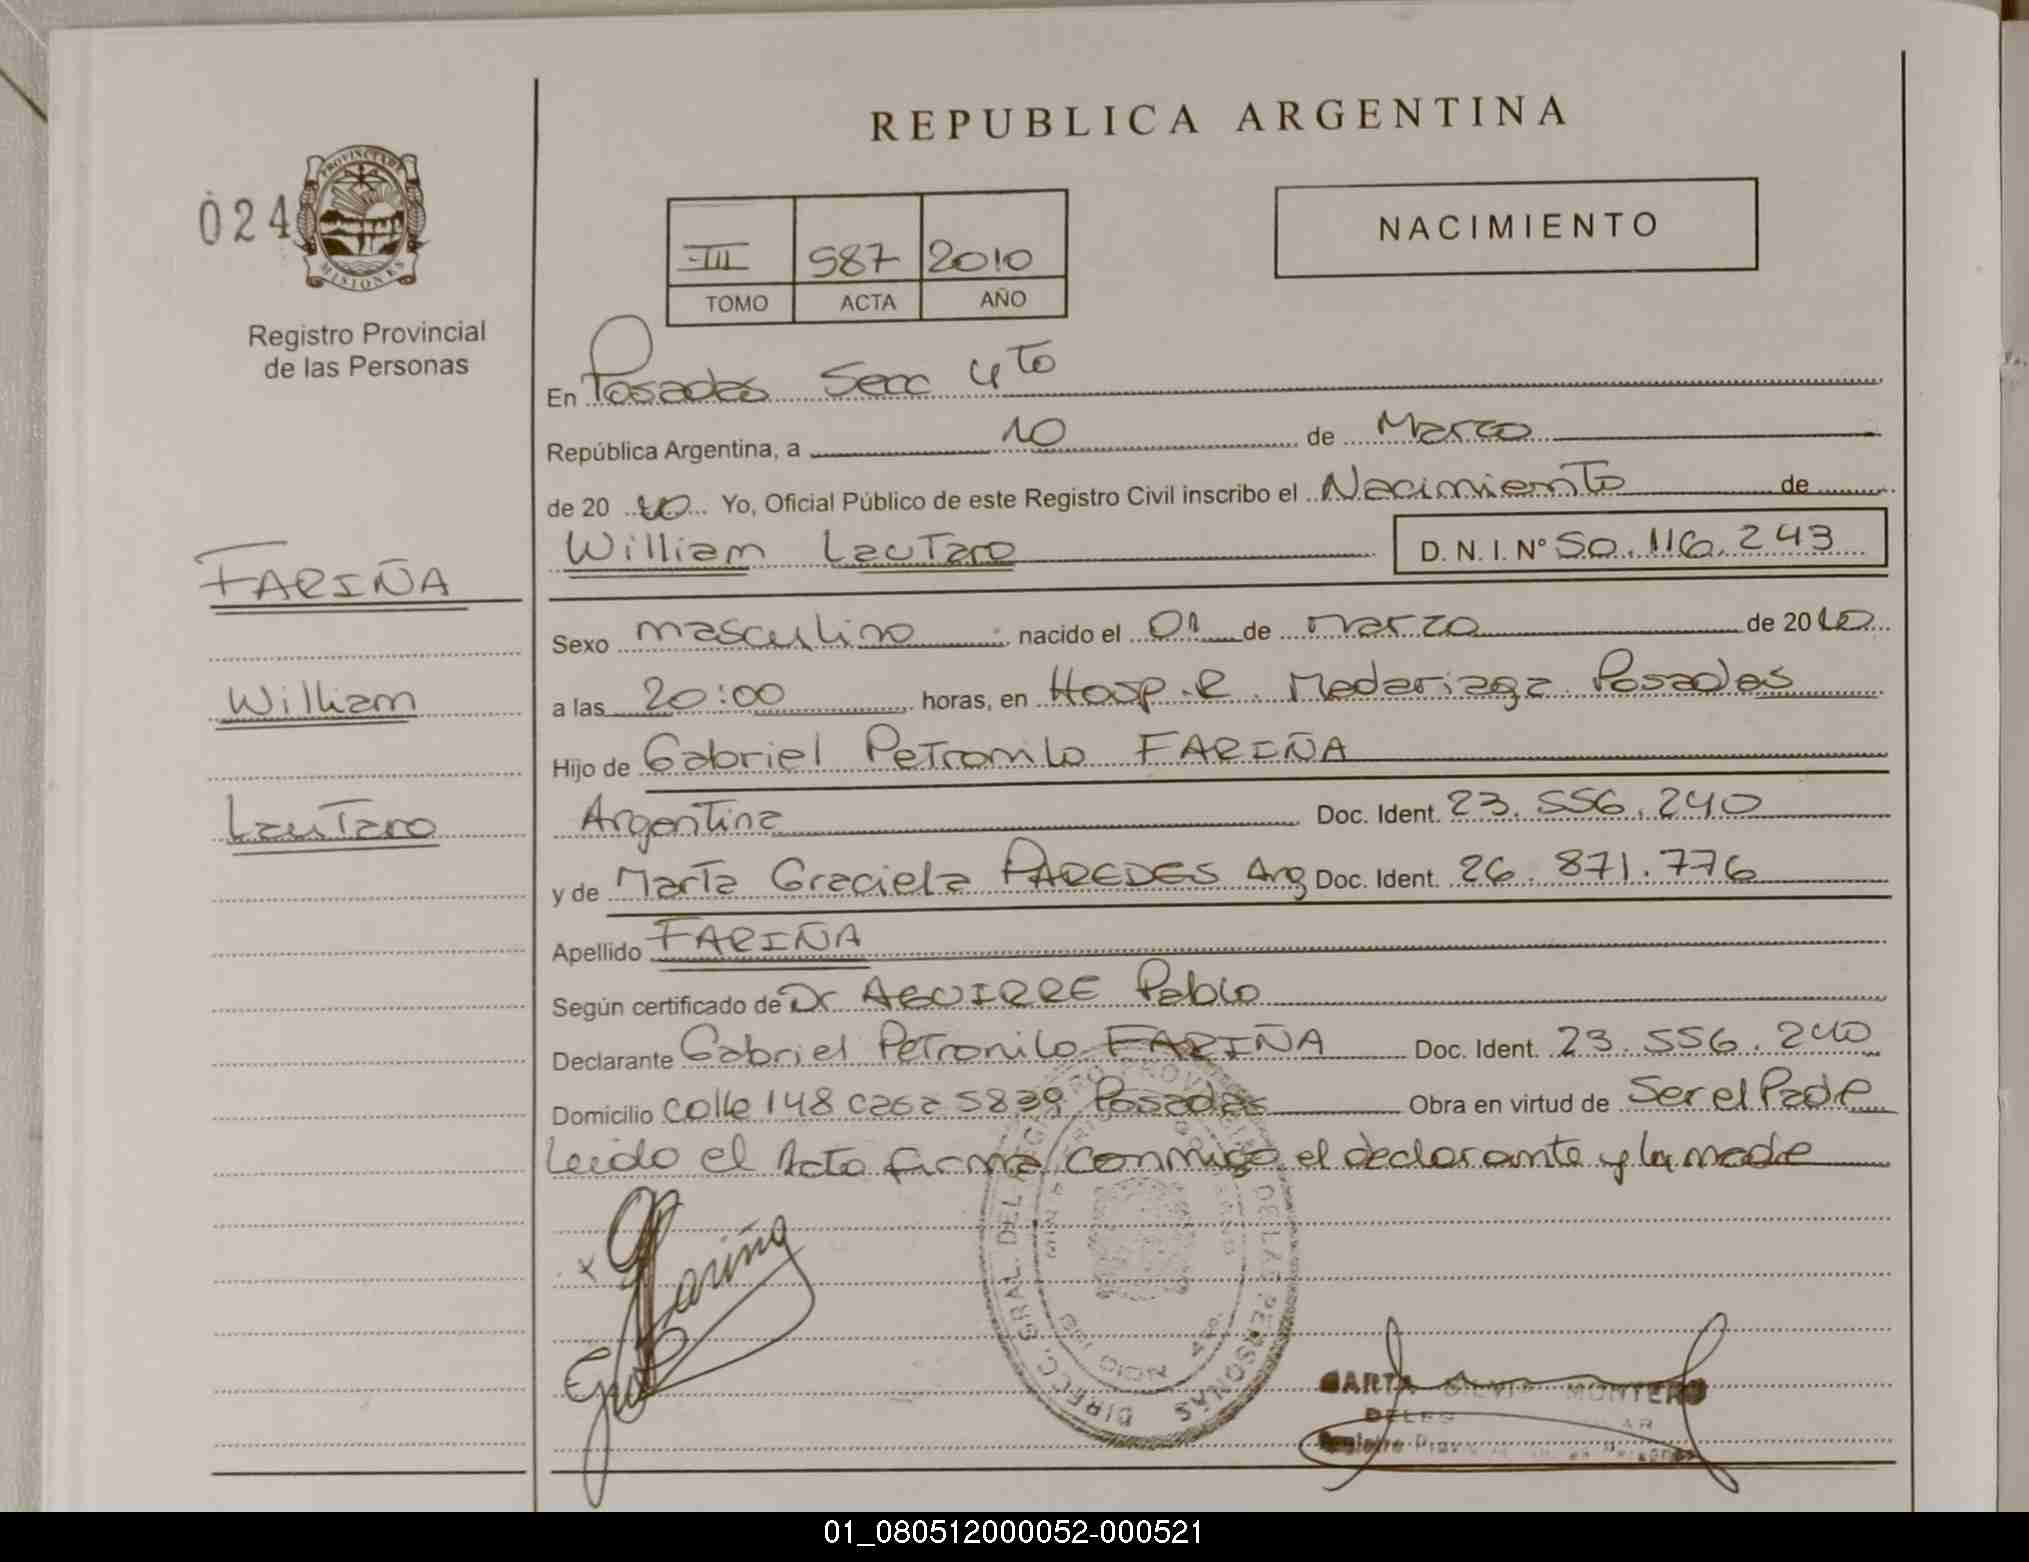 REPUBLICA ARGENTINA
024
PROVINCIA DE
MISIONES
Registro Provincial
de las Personas
III 587 2010
TOMO ACTA AÑO
NACIMIENTO
En Posadas Secc 4to
República Argentina, a 10 de Marzo
de 2010 Yo, Oficial Público de este Registro Civil inscribo el Nacimiento de
William Lautaro D. N. I. N° 50.116.243
FARIÑA
William
Lautaro
Sexo masculino nacido el 01 de marzo de 2010
a las 20:00 horas, en Hosp. R. Madariaga Posadas
Hijo de Gabriel Petronilo FARIÑA
Argentina Doc. Ident. 23.556.240
y de Marta Graciela PAREDES Arg Doc. Ident. 26.871.776
Apellido FARIÑA
Según certificado de Dr AGUIRRE Pablo
Declarante Gabriel Petronilo FARIÑA Doc. Ident. 23.556.240
Domicilio calle 148 casa 5839 Posadas Obra en virtud de Ser el Padre
Leido el Acta firma conmigo el declarante y la madre
x Fariña
DIRECC. GRAL. DEL REGISTRO PROVINCIAL DE LAS PERSONAS
MONTERO
01_080512000052-000521